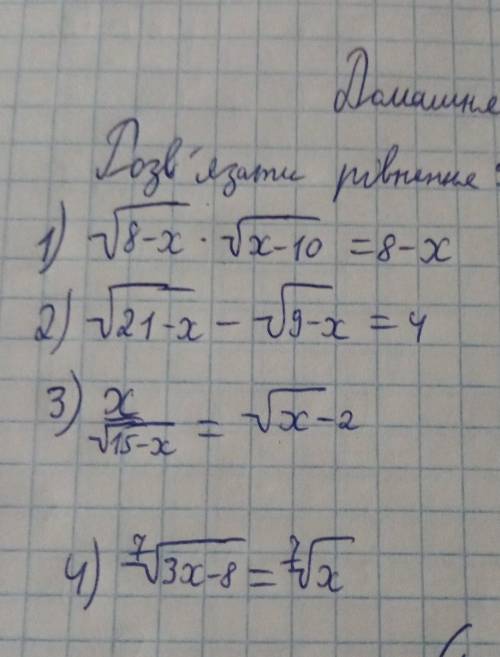 Домашня
Розв'язати рівнення:
1) √(8-x) · √(x-10) = 8-x
2) √(21-x) - √(9-x) = 4
3) x/√(15-x) = √x-2
4) ⁷√(3x-8) = ⁷√x